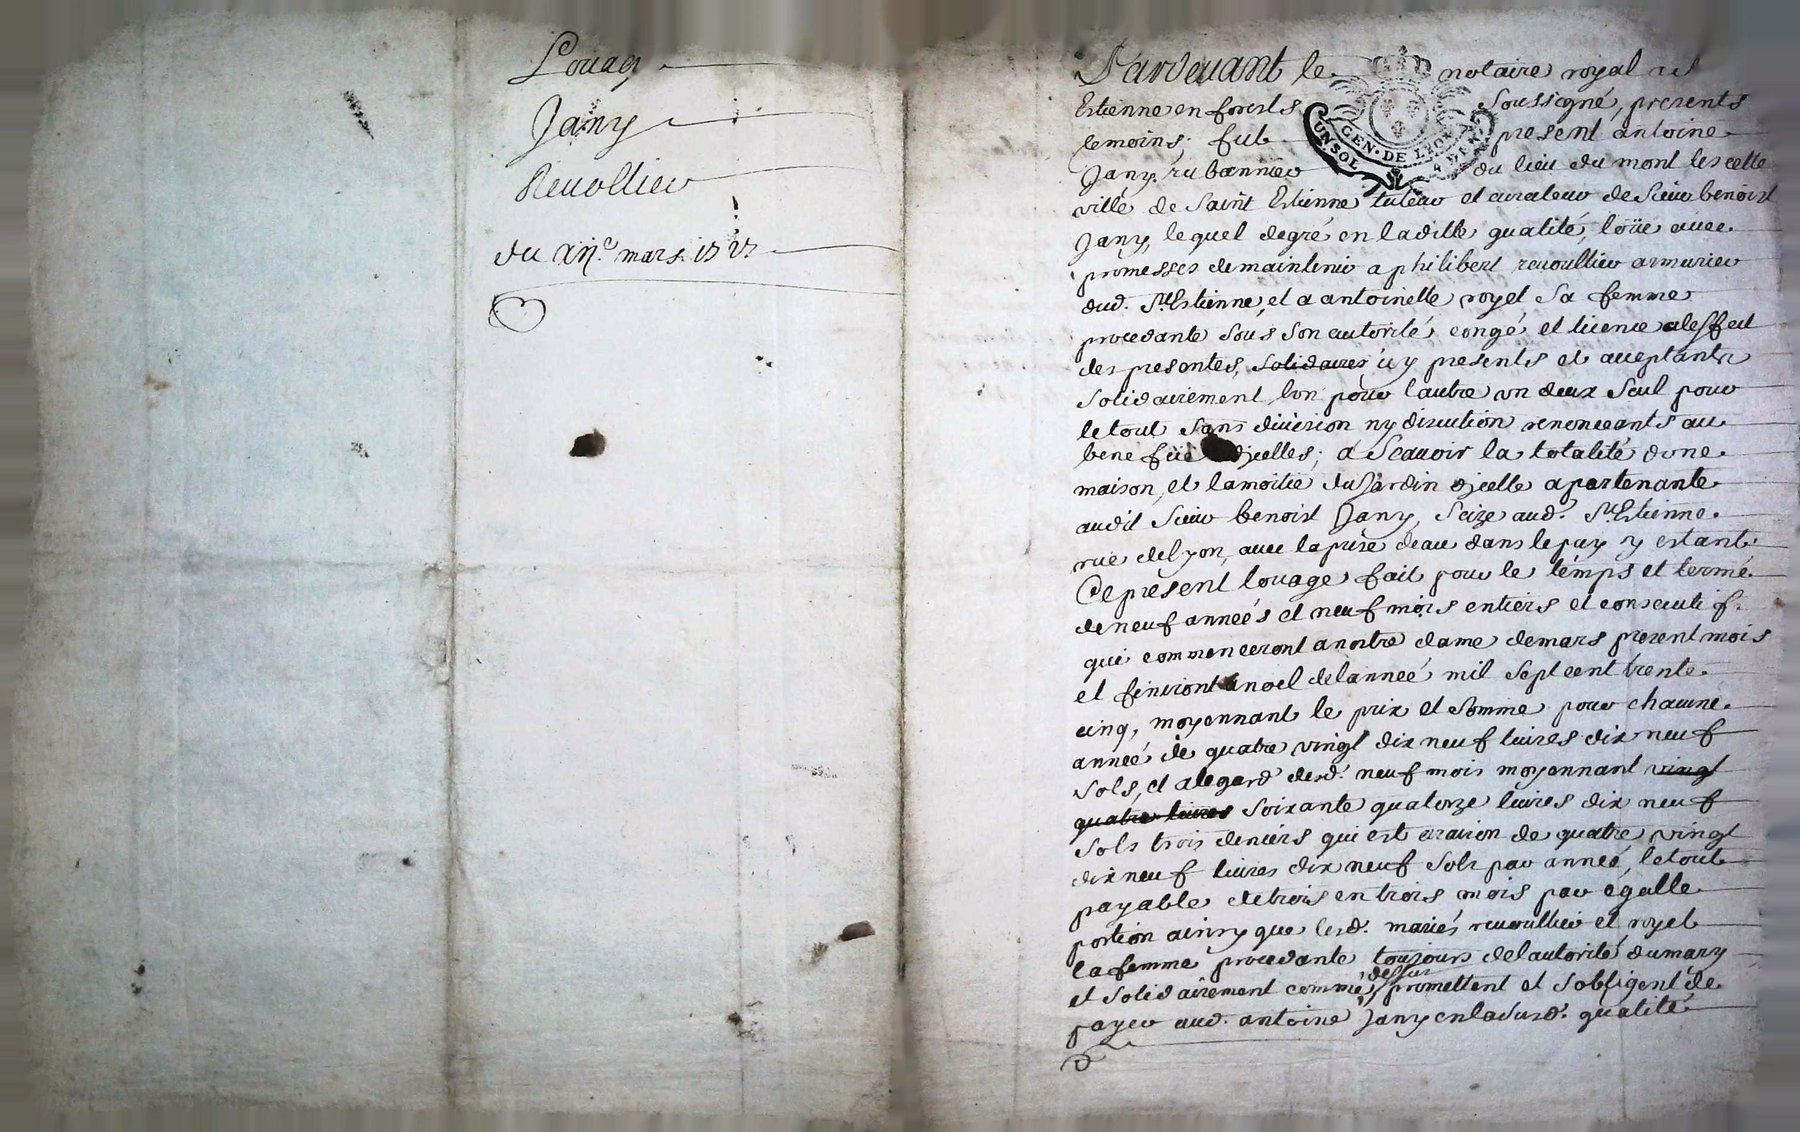 Louag
Jany
Reuollier
du xije mars 1727
Pardeuant le notaire royal a st
Estienne en forests soussigné, presents
temoins; fut present antoine
Jany rubannier du lieu du mont les cette
ville de Saint Estienne tuteur et curateur de Sieur benoist
Jany, lequel degré en laditte qualité, loüe auec
promesses demaintenir a philibert reuoullier armurier
dud. St Estienne, et a antoinette royet sa femme
procedante sous son autorité, congé et licence aleffect
des presentes, solidaires icy presents et acceptants
solidairement lun pour lautre un deux seul pour
letout sans diuision ny discution renonceants au
benefice dicelles; a Scauoir la totalité dune
maison, et lamoitié du Jardin dicelle apartenante
audit Sieur benoist Jany, Scize aud. St Estienne
rue delyon, auec laprise deau dans lepuy y estant
Ce present louage fait pour le temps et terme
deneuf anneés et neuf mois entiers et consecutifs
qui commenceront a nostre dame demars present mois
et finiront a noel delanneé mil sept cent trente
cinq, moyennant le prix et somme pour chacune
anneé de quatre vingt dix neuf liures dix neuf
sols, et alegard desd. neuf mois moyennant vingt
quatre liures soixante quatorze liures dix neuf
sols trois deniers qui est araison de quatre vingt
dix neuf liures dix neuf sols par anneé, letout
payable detrois en trois mois par égalle
portion ainsy que lesd. mariés reuoullier et royet
la femme procedante toujours delautorité dumary
et solidairement comme dessus promettent et sobligent de
payer aud. antoine Jany enladused. qualité
GEN·DE LION
UN SOL 4 DEN.